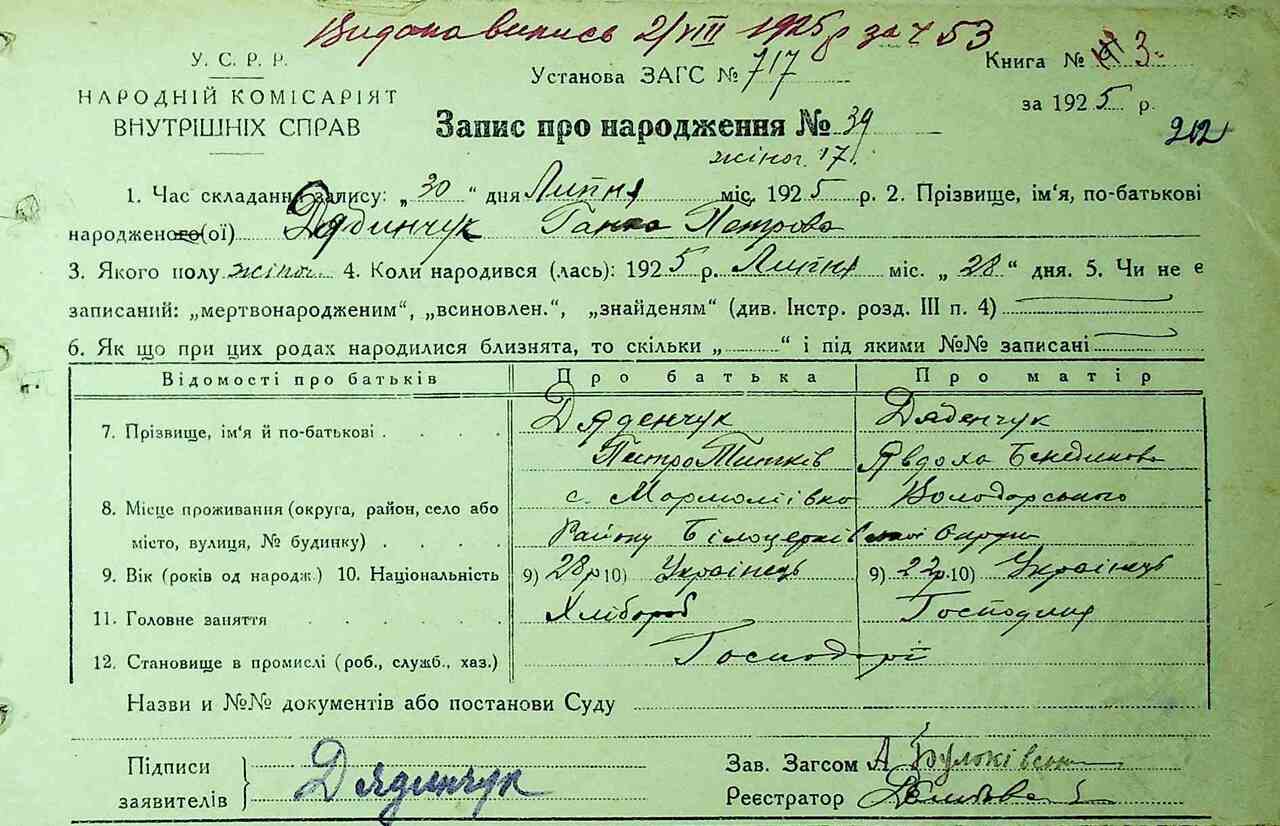 Видана випись 2/VIII 1925 р за ч 53
У. С. Р. Р.
НАРОДНІЙ КОМІСАРІЯТ
ВНУТРІШНІХ СПРАВ
Установа ЗАГС № 717
Книга № 3
за 1925 р.
Запис про народження № 39
212
жіноч. 17.
1. Час складання запису: „ 30 “ дня Липня міс. 1925 р. 2. Прізвище, ім'я, по-батькові
народженого(ої) Дядинчук Ганна Петрова
3. Якого полу жіноч. 4. Коли народився (лась): 1925 р. Липня міс. „ 28 “ дня. 5. Чи не є
записаний: „мертвонародженим“, „всиновлен.“, „знайденям“ (див. Інстр. розд. III п. 4)
6. Як що при цих родах народилися близнята, то скільки „ “ і під якими №№ записані
Відомості про батьків Про батька Про матір
7. Прізвище, ім'я й по-батькові Дяденчук Дяденчук
Петро Титків Явдоха
8. Місце проживання (округа, район, село або с. Мармоліївка Володарського
місто, вулиця, № будинку) Району Білоцерківської округи
9. Вік (років од народж.) 10. Національність 9) 28 р 10) Українець 9) 22 р. 10) Українець
11. Головне заняття Хлібороб Господиня
12. Становище в промислі (роб., служб., хаз.) Господарі
Назви и №№ документів або постанови Суду
Підписи
заявителів
Дядинчук
Зав. Загсом А
Реєстратор